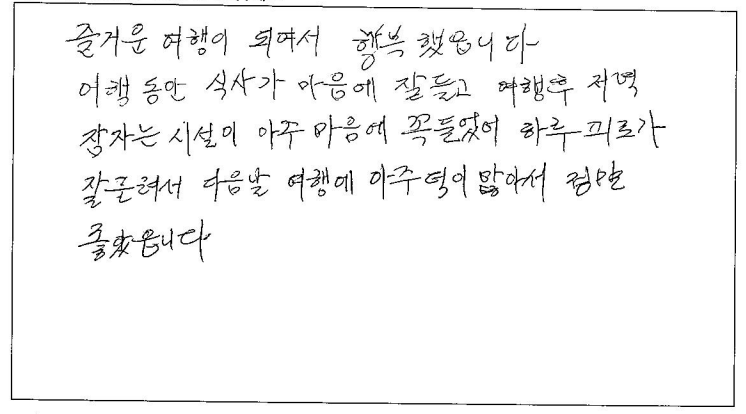 즐거운 여행이 되여서 행복했읍니다
여행 동안 식사가 마음에 잘들고 여행후 저녁
잠자는 시설이 아주 마음에 꼭들었어 하루 피로가
잘풀려서 다음날 여행에 아주 덕이 많아서 정말
좋았읍니다